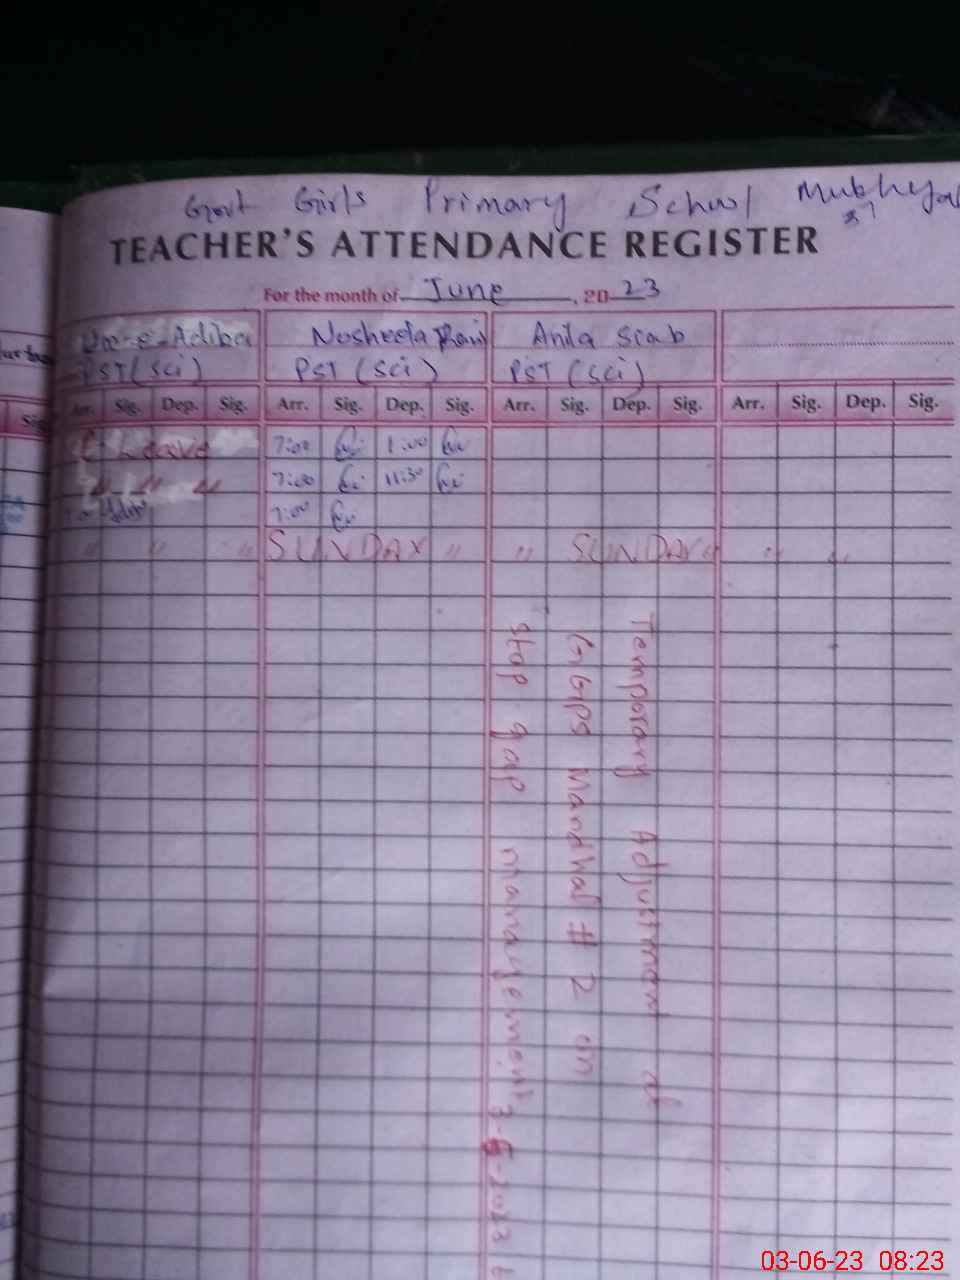 Govt Girls Primary School
37
TEACHER'S ATTENDANCE REGISTER
For the month of June, 2023
Adiba Nosheela Anila
PST (sci) PST (sci) PST (sci)
Arr. Sig. Dep. Sig. Arr. Sig. Dep. Sig. Arr. Sig. Dep. Sig. Arr. Sig. Dep. Sig.
Sig
Leave 7:00 1:00
" " " 7:00 11:30
7:00
" " " SUNDAY " " SUNDAY " " "
Temporary Adjustment at
GGPS Mandhal # 2 on
stop gap management 3-5-2023
03-06-23 08:23